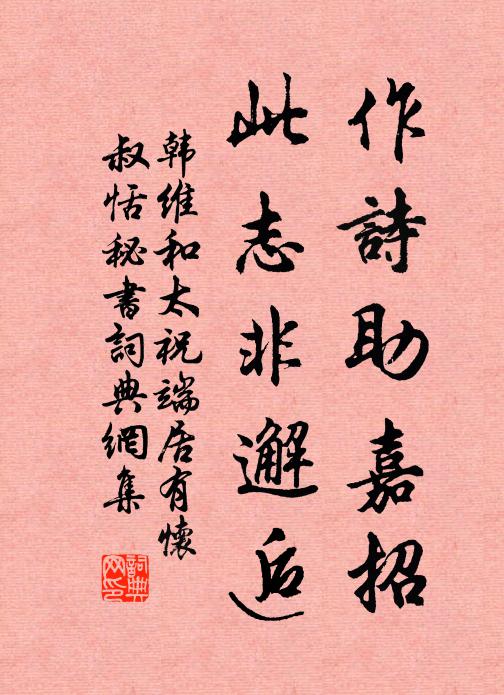 作詩助嘉招
此志非邂逅
韩維和太祝端居有懷
叔恬秘書詞典網集
詞典网印